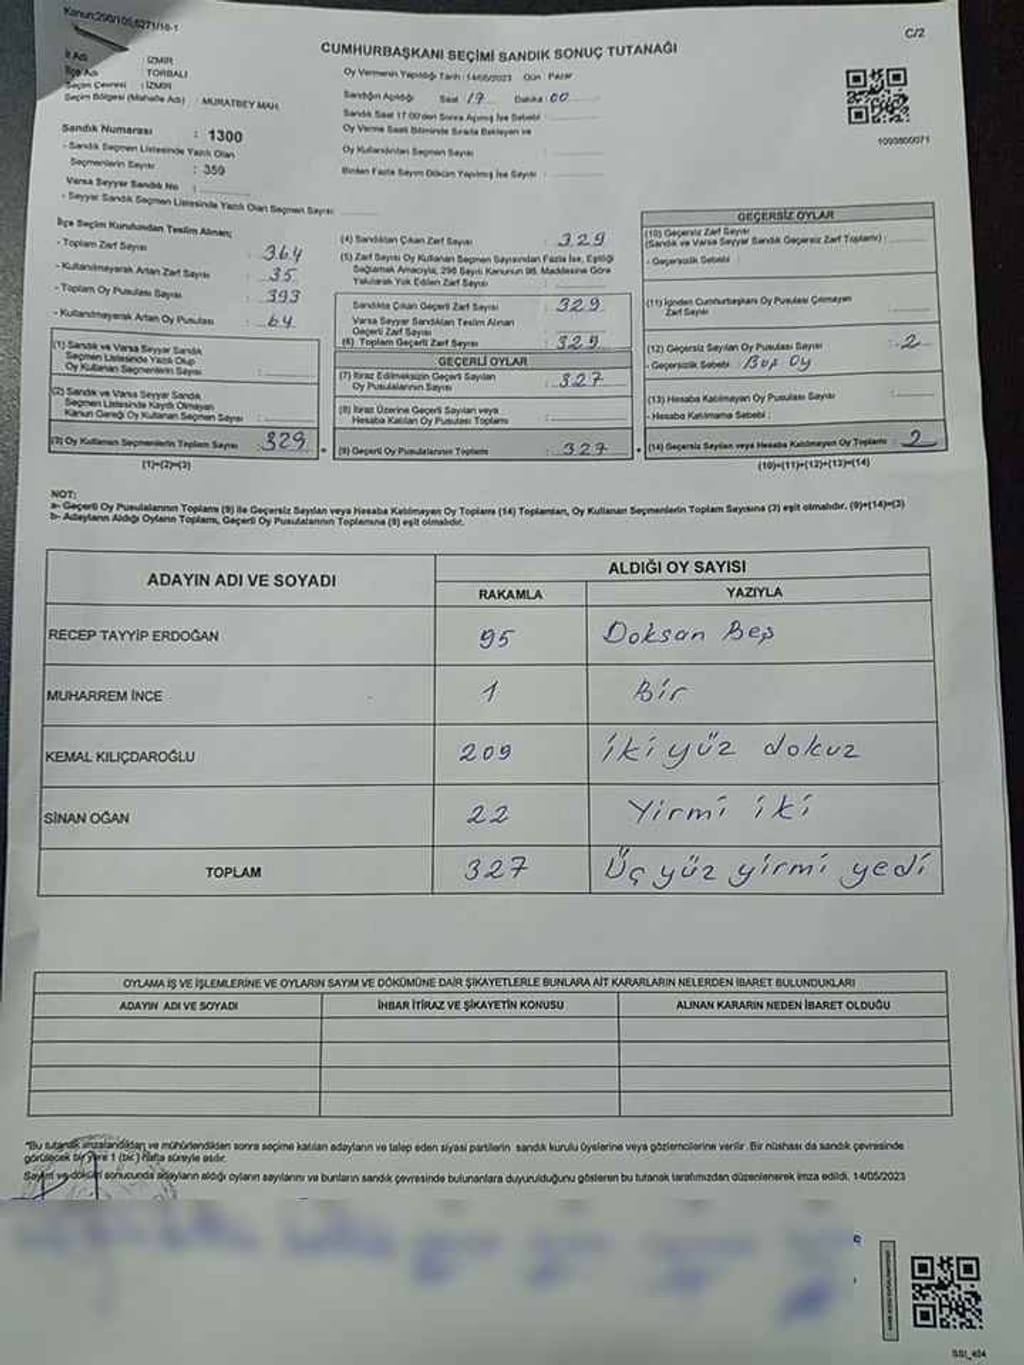 Kanun:298/105,6271/16-1
C/2
CUMHURBAŞKANI SEÇİMİ SANDIK SONUÇ TUTANAĞI
İl Adı : İZMİR
İlçe Adı : TORBALI
Seçim Çevresi : İZMİR
Seçim Bölgesi (Mahalle Adı) : MURATBEY MAH.
Sandık Numarası : 1300
- Sandık Seçmen Listesinde Yazılı Olan
Seçmenlerin Sayısı : 359
Varsa Seyyar Sandık No :
- Seyyar Sandık Seçmen Listesinde Yazılı Olan Seçmen Sayısı
Oy Vermenin Yapıldığı Tarih : 14/05/2023 Gün : Pazar
Sandığın Açıldığı Saat : 17 Dakika : 00
Sandık Saat 17.00'den Sonra Açılmış İse Sebebi :
Oy Verme Saati Bitiminde Sırada Bekleyen ve
Oy Kullandırılan Seçmen Sayısı :
Birden Fazla Sayım Döküm Yapılmış İse Sayısı :
1093800071
İlçe Seçim Kurulundan Teslim Alınan;
- Toplam Zarf Sayısı : 364
- Kullanılmayarak Artan Zarf Sayısı : 35
- Toplam Oy Pusulası Sayısı : 393
- Kullanılmayarak Artan Oy Pusulası : 64
(1) Sandık ve Varsa Seyyar Sandık
Seçmen Listesinde Yazılı Olup
Oy Kullanan Seçmenlerin Sayısı :
(2) Sandık ve Varsa Seyyar Sandık
Seçmen Listesinde Kayıtlı Olmayan
Kanun Gereği Oy Kullanan Seçmen Sayısı :
(3) Oy Kullanan Seçmenlerin Toplam Sayısı : 329
(1)+(2)=(3)
(4) Sandıktan Çıkan Zarf Sayısı : 329
(5) Zarf Sayısı Oy Kullanan Seçmen Sayısından Fazla İse, Eşitliği
Sağlamak Amacıyla, 298 Sayılı Kanunun 98. Maddesine Göre
Yakılarak Yok Edilen Zarf Sayısı :
Sandıkta Çıkan Geçerli Zarf Sayısı : 329
Varsa Seyyar Sandıktan Teslim Alınan
Geçerli Zarf Sayısı :
(6) Toplam Geçerli Zarf Sayısı : 329
GEÇERLİ OYLAR
(7) İtiraz Edilmeksizin Geçerli Sayılan
Oy Pusulalarının Sayısı : 327
(8) İtiraz Üzerine Geçerli Sayılan veya
Hesaba Katılan Oy Pusulası Toplamı :
(9) Geçerli Oy Pusulalarının Toplamı : 327
GEÇERSİZ OYLAR
(10) Geçersiz Zarf Sayısı
(Sandık ve Varsa Seyyar Sandık Geçersiz Zarf Toplamı) :
- Geçersizlik Sebebi :
(11) İçinden Cumhurbaşkanı Oy Pusulası Çıkmayan
Zarf Sayısı :
(12) Geçersiz Sayılan Oy Pusulası Sayısı : 2
- Geçersizlik Sebebi : Boş Oy
(13) Hesaba Katılmayan Oy Pusulası Sayısı :
- Hesaba Katılmama Sebebi :
(14) Geçersiz Sayılan veya Hesaba Katılmayan Oy Toplamı : 2
(10)+(11)+(12)+(13)=(14)
NOT:
a- Geçerli Oy Pusulalarının Toplamı (9) ile Geçersiz Sayılan veya Hesaba Katılmayan Oy Toplamı (14) Toplamları, Oy Kullanan Seçmenlerin Toplam Sayısına (3) eşit olmalıdır. (9)+(14)=(3)
b- Adayların Aldığı Oyların Toplamı, Geçerli Oy Pusulalarının Toplamına (9) eşit olmalıdır.
ADAYIN ADI VE SOYADI
ALDIĞI OY SAYISI
RAKAMLA YAZIYLA
RECEP TAYYİP ERDOĞAN 95 Doksan Beş
MUHARREM İNCE 1 Bir
KEMAL KILIÇDAROĞLU 209 iki yüz dokuz
SİNAN OĞAN 22 Yirmi iki
TOPLAM 327 Üç yüz yirmi yedi
OYLAMA İŞ VE İŞLEMLERİNE VE OYLARIN SAYIM VE DÖKÜMÜNE DAİR ŞİKAYETLERLE BUNLARA AİT KARARLARIN NELERDEN İBARET BULUNDUKLARI
ADAYIN ADI VE SOYADI İHBAR İTİRAZ VE ŞİKAYETİN KONUSU ALINAN KARARIN NEDEN İBARET OLDUĞU
*Bu tutanak imzalandıktan ve mühürlendikten sonra seçime katılan adayların ve talep eden siyasi partilerin sandık kurulu üyelerine veya gözlemcilerine verilir. Bir nüshası da sandık çevresinde
görülecek bir yere 1 (bir) hafta süreyle asılır.
Sayım ve döküm sonucunda adayların aldığı oyların sayılarını ve bunların sandık çevresinde bulunanlara duyurulduğunu gösteren bu tutanak tarafımızdan düzenlenerek imza edildi. 14/05/2023